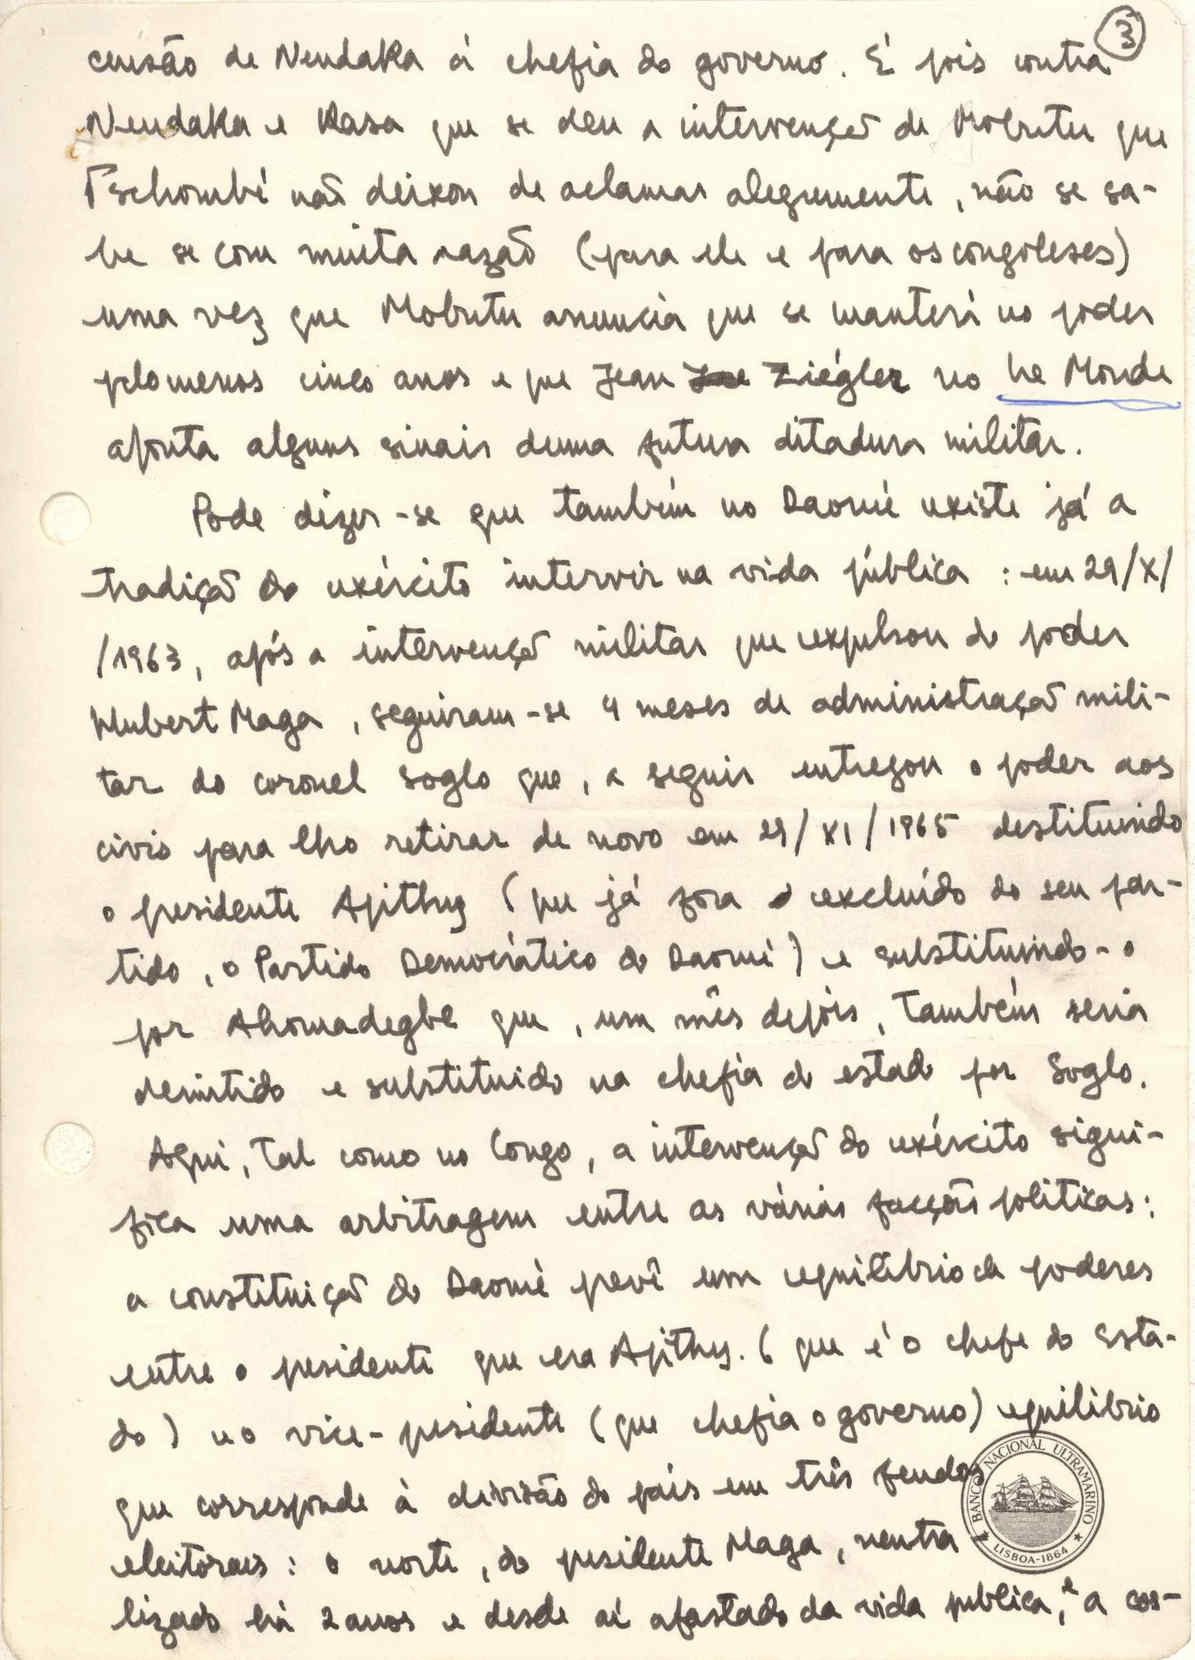 3
censão de Nendaka à chefia do governo. É pois contra
Nendaka e Kasa que se deu a intervenção de Mobutu que
Tschombé não deixou de aclamar alegremente, não se sa-
be se com muita razão (para ele e para os congoleses)
uma vez que Mobutu anuncia que se manterá no poder
pelo menos cinco anos e que Jean Ziégler no Le Monde
aponta alguns sinais duma futura ditadura militar.
Pode dizer-se que também no Daomé existe já a
tradição do exército intervir na vida pública : em 29/X/
/1963, após a intervenção militar que expulsou do poder
Hubert Maga, seguiram-se 4 meses de administração mili-
tar do coronel Soglo que, a seguir entregou o poder aos
civis para lho retirar de novo em 29/XI/1965 destituindo
o presidente Apithy (que já fora excluído do seu par-
tido, o Partido Democrático do Daomé) e substituindo-o
por Ahomadegbé que, um mês depois, também seria
demitido e substituido na chefia do estado por Soglo.
Aqui, tal como no Congo, a intervenção do exército signi-
fica uma arbitragem entre as várias facções politicas:
a constituição do Daomé prevê um equilíbrio de poderes
entre o presidente que era Apithy. (que é o chefe do Esta-
do) e o vice-presidente (que chefia o governo) equilibrio
que corresponde à divisão do país em três feudos
eleitorais : o norte, do presidente Maga, neutra-
lizado há 2 anos e desde aí afastado da vida publica, e a cos-
BANCO NACIONAL ULTRAMARINO
LISBOA-1864